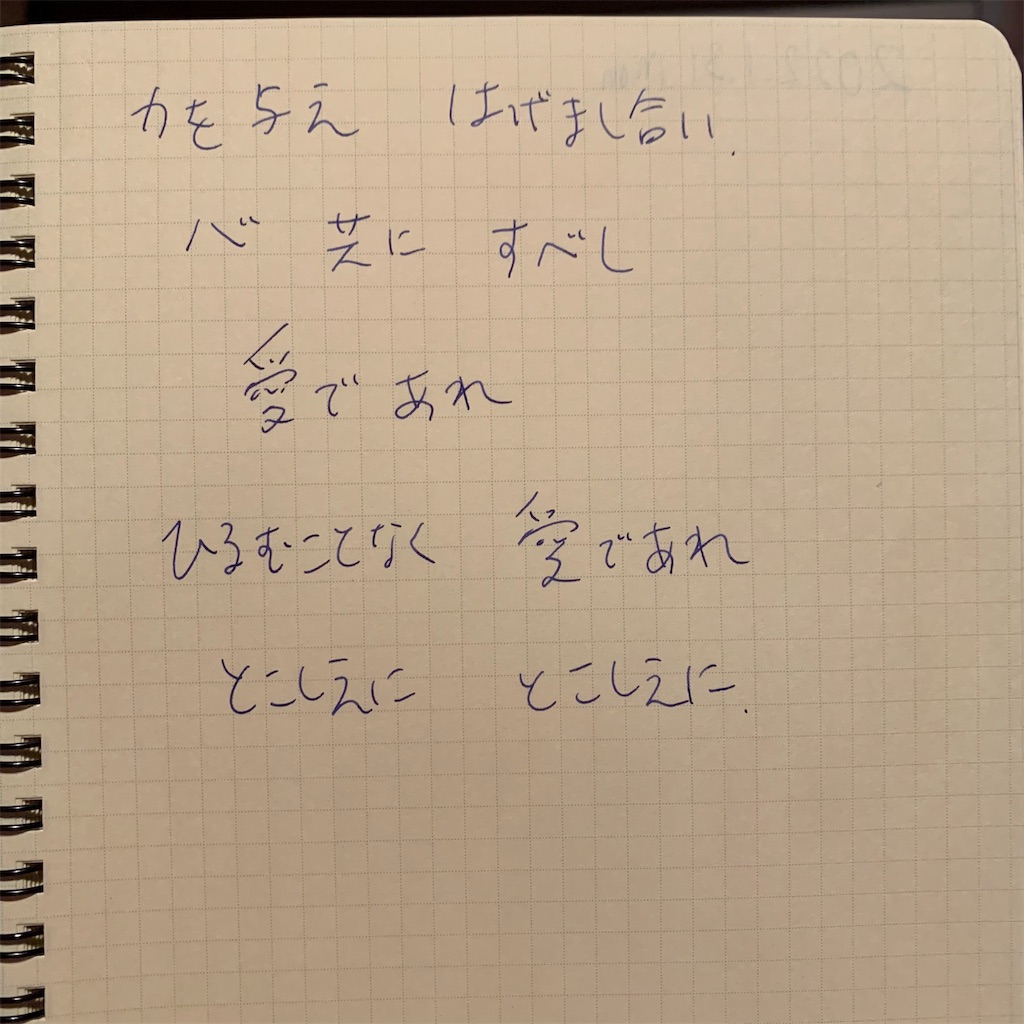 力を与え はげまし合い.
心 共に すべし
愛であれ
ひるむことなく 愛であれ
とこしえに とこしえに.